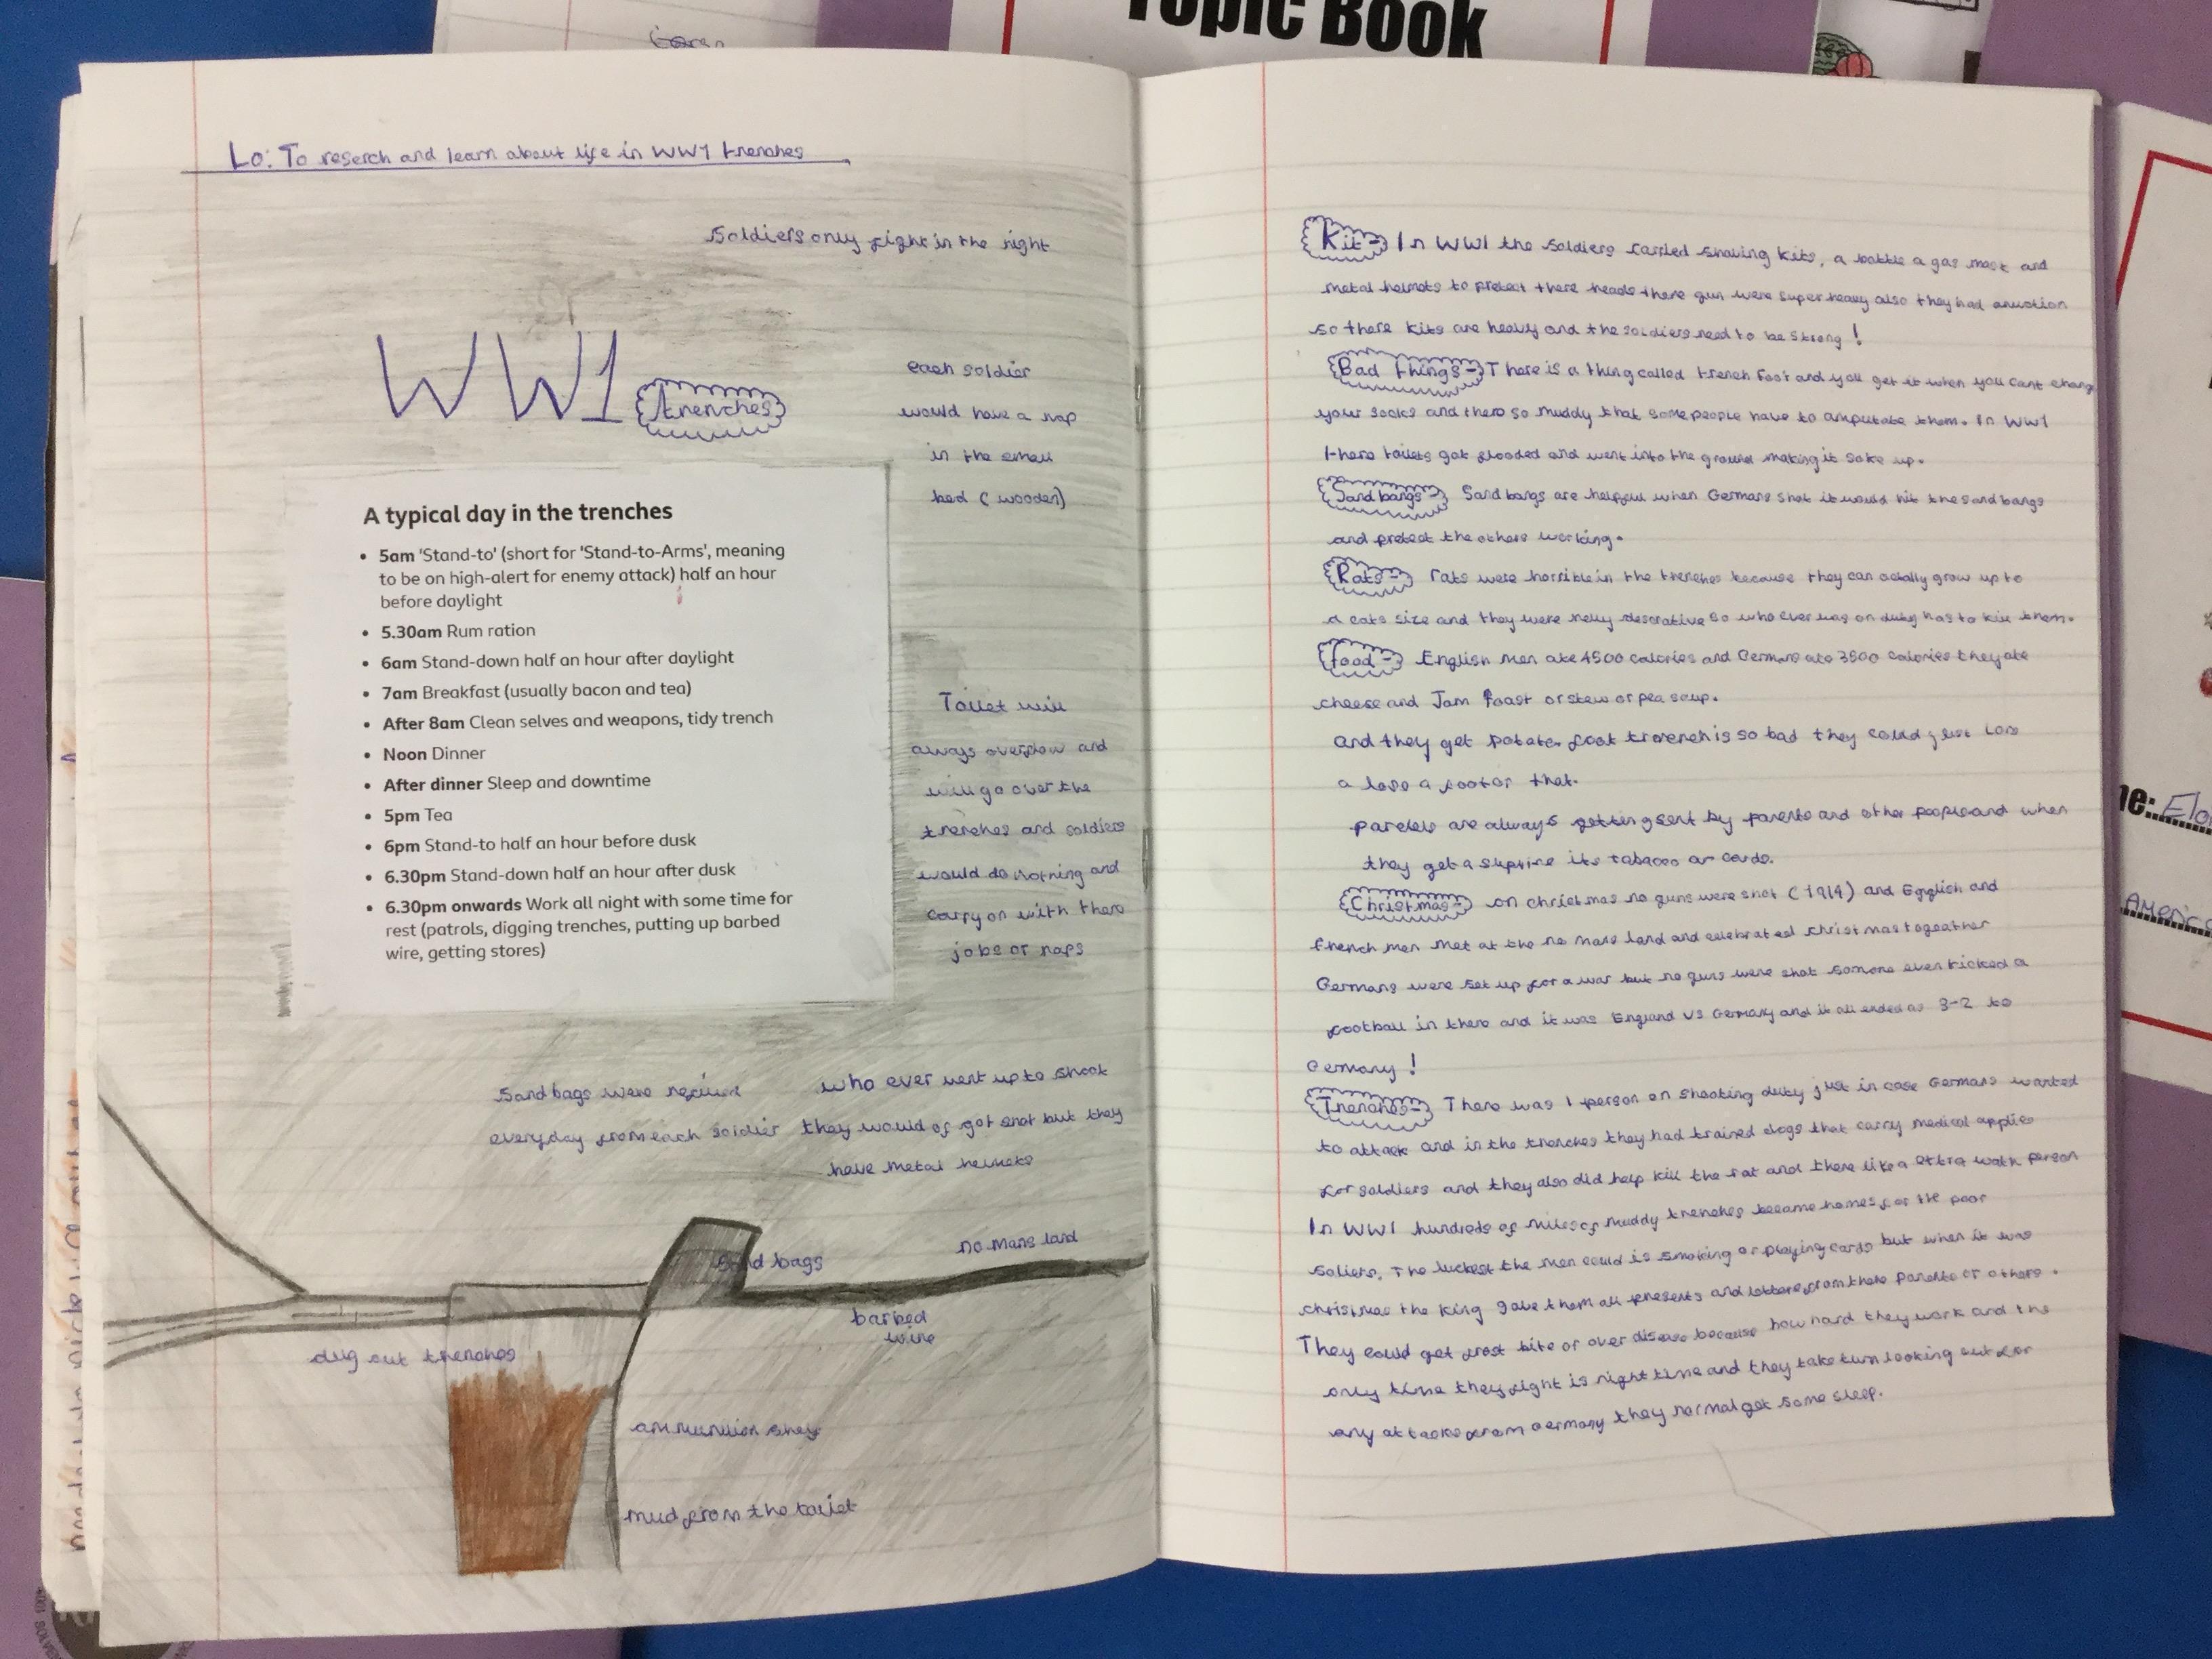 Topic Book
Lo: To reserch and learn about life in WW1 trenches
Soldiers only fight in the night
WW1 trenches
each soldier
would have a nap
in the small
bed (wooden)
A typical day in the trenches
• 5am 'Stand-to' (short for 'Stand-to-Arms', meaning
to be on high-alert for enemy attack) half an hour
before daylight
• 5.30am Rum ration
• 6am Stand-down half an hour after daylight
• 7am Breakfast (usually bacon and tea)
• After 8am Clean selves and weapons, tidy trench
• Noon Dinner
• After dinner Sleep and downtime
• 5pm Tea
• 6pm Stand-to half an hour before dusk
• 6.30pm Stand-down half an hour after dusk
• 6.30pm onwards Work all night with some time for
rest (patrols, digging trenches, putting up barbed
wire, getting stores)
Toilet will
always overflow and
will go over the
trenches and soldiers
would do nothing and
carry on with there
jobs or naps
Sand bags were
everyday from each soldier
who ever went up to shoot
they would of got shot but they
have metal helmets
sand bags
no mans land
barbed
wire
dug out trenches
ammunition shelf
mud from the toilet
Kit- In WW1 the soldiers carried shaving kits, a bottle a gas mask and
metal helmets to protect there heads there gun were super heavy also they had
so there kits are heavy and the soldiers need to be strong!
Bad things- There is a thing called trench foot and you get it when you cant change
your socks and there so muddy that some people have to amputate them. In WW1
there toilets got flooded and went into the ground making it soke up.
Sand bangs- Sand bangs are helpful when Germans shot it would hit the sand bangs
and protect the others working.
Rats- rats were horrible in the trenches because they can actally grow up to
a cats size and they were so who ever was on duty has to kill them.
food- English men ate 4500 calories and Germans ate 3500 calories they ate
cheese and Jam toast or stew or pea soup.
and they get so bad they could just
a lose a foot or that.
parcels are always getting sent by parents and other people and when
they get a its tabacco or cards.
Christmas- on christmas no guns were shot (1914) and English and
french men met at the no mans land and celebrated christmas togeather
Germans were set up for a war but no guns were shot somone even kicked a
football in there and it was England VS Germany and it all ended as 3-2 to
Germany!
Trenches- There was 1 person on shooting duty just in case Germans wanted
to attack and in the trenches they had trained dogs that carry medical
for soldiers and they also did help kill the rat and there like a person
In WW1 hundreds of miles of muddy trenches became homes for the poor
soliers. The luckest the men could is smoking or playing cards but when it was
christmas the king gave them all presents and letters from there parents or others.
They could get frost bite or over disease because how hard they work and the
only time they fight is night time and they take turn looking out for
any attacks from Germany they normal get some sleep.